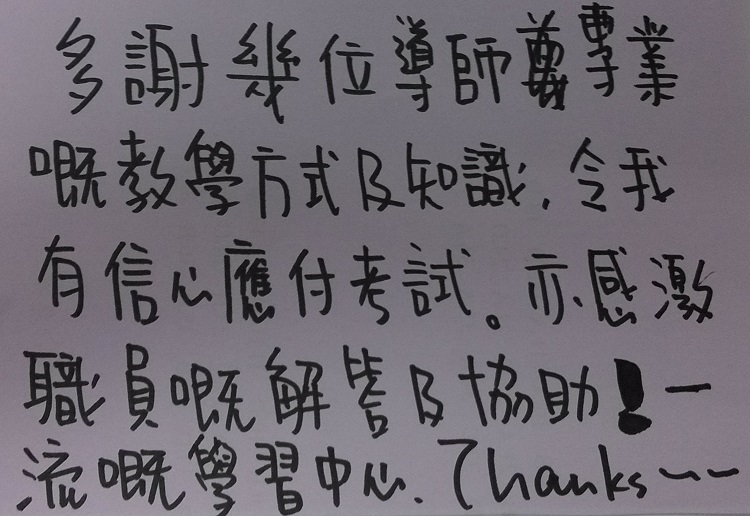 多謝幾位導師專業
嘅教學方式及知識，令我
有信心應付考試。亦感激
職員嘅解答及協助！一
流嘅學習中心. Thanks~~